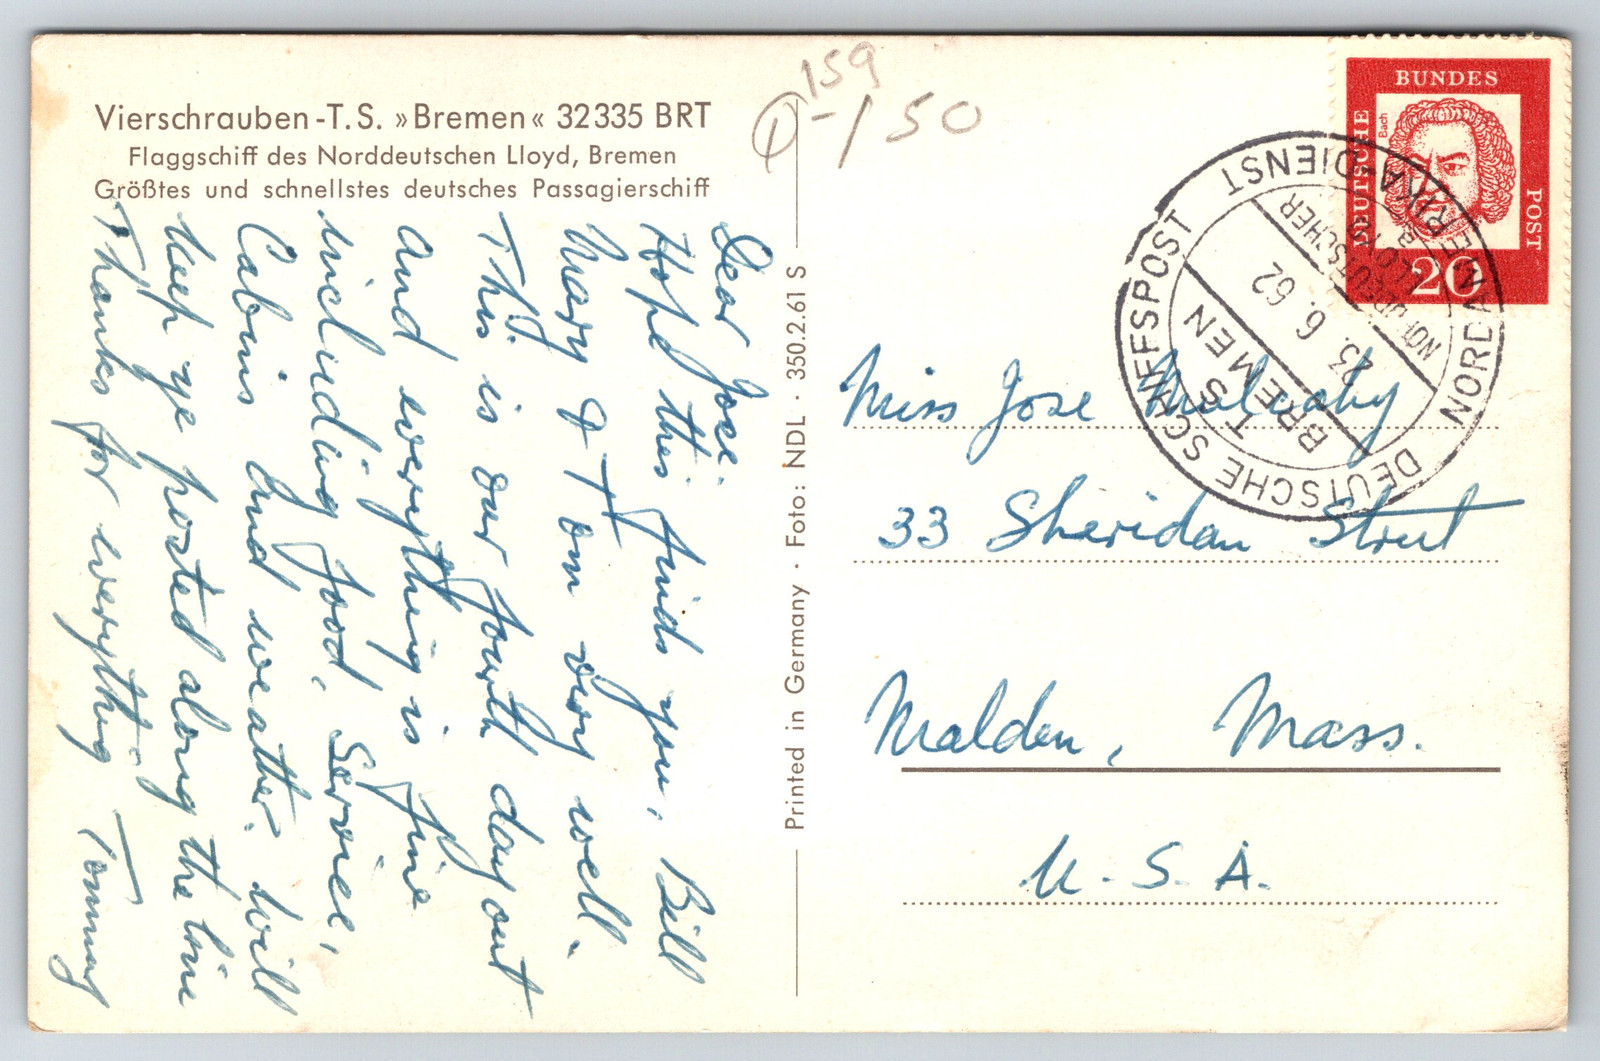 Vierschrauben-T.S. »Bremen« 32335 BRT
Flaggschiff des Norddeutschen Lloyd, Bremen
Größtes und schnellstes deutsches Passagierschiff
Dear Jose:
Hope this finds you, Bill
Mary & Tom very well.
This is our fourth day out
and everything is fine
including food, service,
Cabins and weather. Will
keep ye posted along the line
Thanks for everything Tommy
Printed in Germany · Foto: NDL · 350.2.61 S
159
1-/50
BUNDES
DEUTSCHE
POST
Bach
20
DEUTSCHE SCHIFFSPOST
NORDAMERIKA-DIENST
TS
BREMEN
23. 6. 62
NORDDEUTSCHER
LLOYD
Miss Jose Mulcahy
33 Sheridan Street
Malden, Mass.
U.S.A.